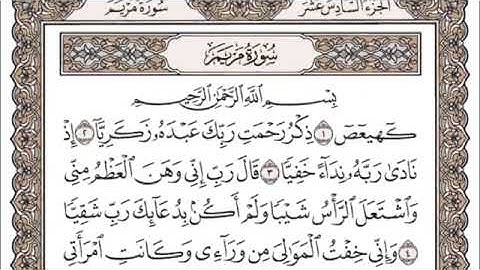 الجزء السادس عشر
سورة مريم
سورة مريم
بِسْمِ ٱللَّهِ ٱلرَّحْمَٰنِ ٱلرَّحِيمِ
كٓهيعٓصٓ ۝١ ذِكْرُ رَحْمَتِ رَبِّكَ عَبْدَهُۥ زَكَرِيَّآ ۝٢ إِذْ
نَادَىٰ رَبَّهُۥ نِدَآءً خَفِيًّا ۝٣ قَالَ رَبِّ إِنِّي وَهَنَ ٱلْعَظْمُ مِنِّي
وَٱشْتَعَلَ ٱلرَّأْسُ شَيْبًا وَلَمْ أَكُنۢ بِدُعَآئِكَ رَبِّ شَقِيًّا
۝٤ وَإِنِّي خِفْتُ ٱلْمَوَٰلِيَ مِن وَرَآءِي وَكَانَتِ ٱمْرَأَتِي